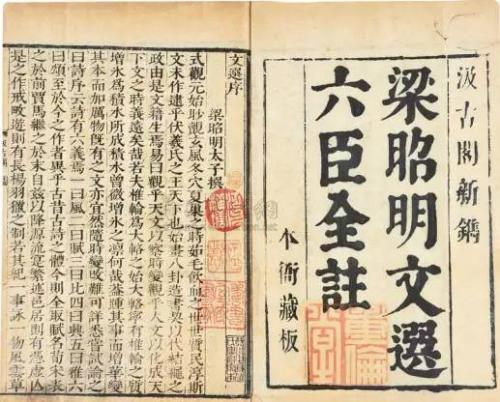 汲古閣新鐫
梁昭明文選
六臣全註
本衙藏板
文選序
梁昭明太子撰
式觀元始眇覿玄風冬穴夏巢之時茹毛飲血之世世質民淳斯
文未作逮乎伏羲氏之王天下也始畫八卦造書契以代結繩之
政由是文籍生焉易曰觀乎天文以察時變觀乎人文以化成天
下文之時義遠矣哉若夫椎輪爲大輅之始大輅寧有椎輪之質
增冰爲積水所成積水曾微增冰之凛何哉蓋踵其事而增華變
其本而加厲物既有之文亦宜然隨時變改難可詳悉嘗試論之
曰詩序云詩有六義焉一曰風二曰賦三曰比四曰興五曰雅六
曰頌至於今之作者異乎古昔古詩之體今則全取賦名荀宋表
之於前賈馬繼之於末自茲以降源流寔繁述邑居則有憑虛亡
是之作戒畋遊則有長楊羽獵之制若其紀一事詠一物風雲草